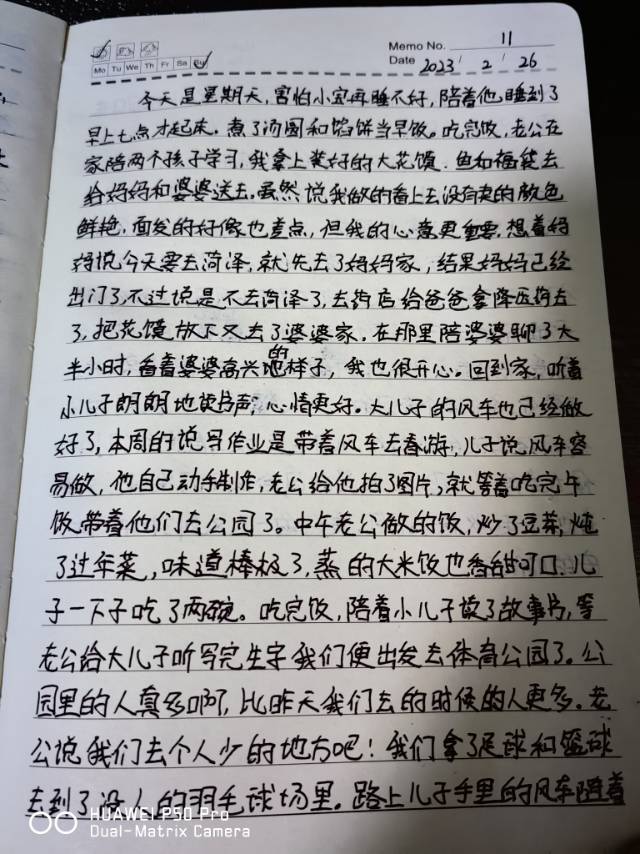 Memo No. 11
Mo Tu We Th Fr Sa Su
Date 2023 / 2 / 26
今天是星期天,害怕小宝再睡不好,陪着他睡到了
早上七点才起床。煮了汤圆和馅饼当早饭。吃完饭,老公在
家陪两个孩子学习,我拿上装好的大花馍、鱼和福袋去
给妈妈和婆婆送去。虽然说我做的看上去没有卖的颜色
鲜艳,面发的好像也差点,但我的心意更重要。想着妈
妈说今天要去菏泽,就先去了妈妈家,结果妈妈已经
出门了,不过说是不去菏泽了,去药店给爸爸拿降压药去
了,把花馍放下又去了婆婆家。在那里陪婆婆聊了大
半小时,看着婆婆高兴的样子,我也很开心。回到家,听着
小儿子朗朗地读书声,心情更好。大儿子的风车也已经做
好了,本周的说写作业是带着风车去春游,儿子说风车容
易做,他自己动手制作,老公给他拍了图片,就等着吃完午
饭带着他们去公园了。中午老公做的饭,炒了豆芽,炖
了过年菜,味道棒极了,蒸的大米饭也香甜可口,儿
子一下子吃了两碗。吃完饭,陪着小儿子读了故事书,等
老公给大儿子听写完生字我们便出发去体育公园了。公
园里的人真多啊,比昨天我们去的时候的人更多。老
公说我们去个人少的地方吧!我们拿了足球和篮球
去到了没人的羽毛球场里。路上儿子手里的风车随着
HUAWEI P50 Pro
Dual-Matrix Camera